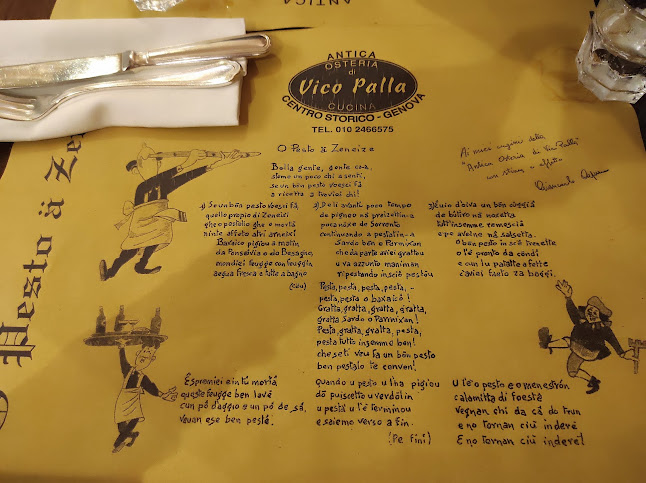 ANTICA
ANTICA
OSTERIA
di
Vico Palla
CUCINA
CENTRO STORICO - GENOVA
TEL. 010 2466575
O Pesto ä Zeneize
Ai miei amici della
"Antica Osteria di Vico Palla"
con stima e affetto
Bella gente, gente cara,
stæmo un poco chì a sentî,
se un bon pesto voescì fâ
a ricetta a troviei chì!
1) Se un bön pesto voescì fâ,
quello propio di Zeneixi
ghe o postello ghe o mortâ
ninte affeto atri arneixi
Baxaico pigiòu a matin
da Fonseivia o do Besagno,
mondæi feugge con feuggin
aegua fresca e tutto a bagno
(cöu)
2) Do lì avanti poco tempo
do pigneo nä greizettin-a
poca nâxe do Sorvento
continuando a pestatin-a
Sardo bön o Parmixan
che da parte aviei grattòu
u va azzunto man inan
ripestando insciò pestòu
3) Euio d'oiva un bon cuggiâ
de bitiro nä nocetta
tutt'insemme remesciâ
e pe aveine nä salsetta.
O bon pesto in sce trenette
o l'è pronto da condî
e cun lu patatte a fette
Pesta, pesta, pesta, pesta, -
pesta, pesta o baxaicò!
Gratta, gratta, gratta, gratta,
gratta Sardo o Parmixan!
Pesta, gratta, gratta, pesta,
pesta tutto insemme ben!
che se ti veu fâ un bön pesto
ben pestalo te conven!
Espromiei e in tü mortâ
queste feugge ben lavê
cun pö d'aggio e un pö de sâ,
veuan ese ben pestê.
Quando u pesto u l'ha pigiòu
dö puiscetto u verdolin
u pestâ u l'è terminòu
e saiemo verso a fin.
(Pe finî)
U l'è o pesto e o meneströn
calamitta di foestê
vegnan chì da cä do trun
e no tornan ciü inderê
E no tornan ciü inderê!
O Pesto ä Ze